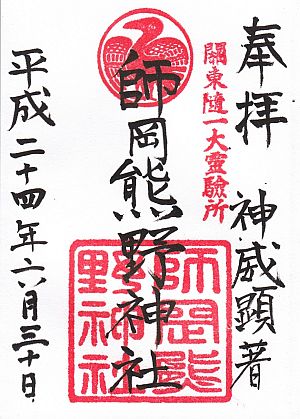 奉拝
神威顕著
関東随一大霊験所
師岡熊野神社
師岡熊野神社
平成二十四年六月三十日